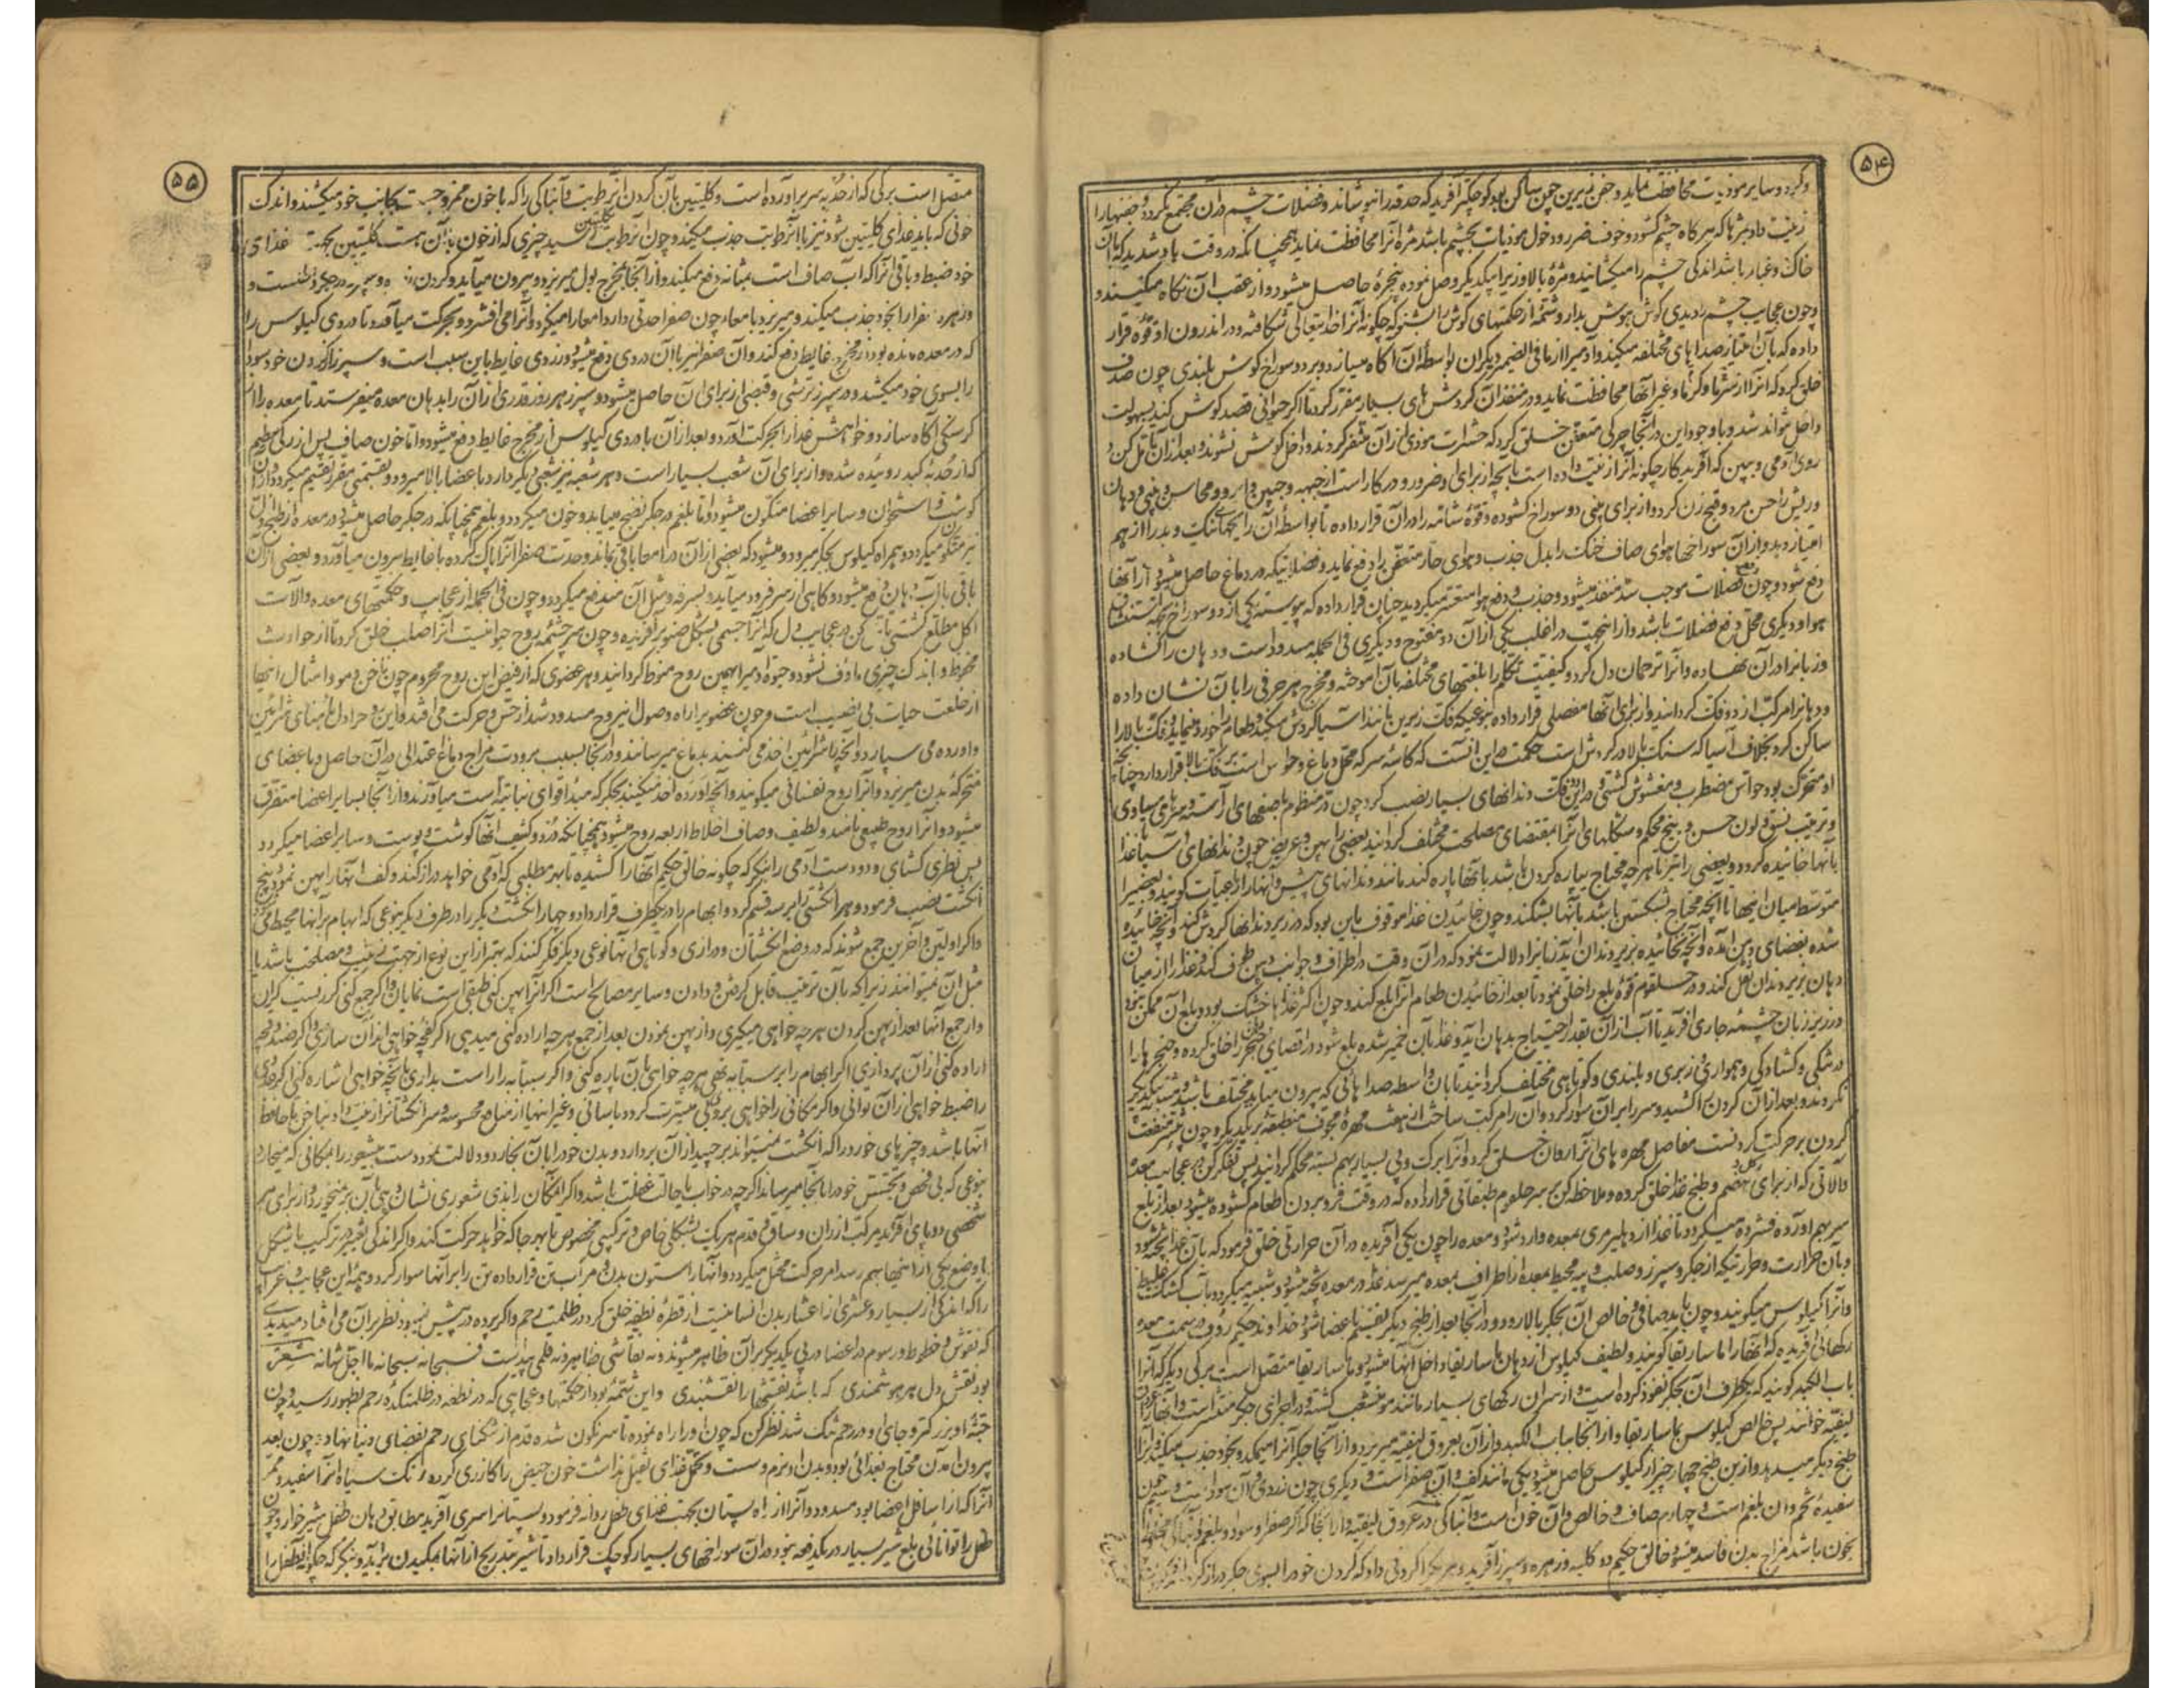 ۵۴
وکرد و سایر موذیات محافظت نماید و جفن زیرین چون ساکن بود کوچکتر آفرید که حدقه را نپوشاند و فضلات چشم در آن مجتمع نگردد و جفنها را
زینت داد بمژها که هر کاه چشم کشود و خوف ضرر و دخول موذیات بچشم باشد مژه آنرا محافظت نماید همچنانکه در وقت باد شدید که با آن
خاک و غبار باشد اندکی چشم را میکشایند و مژهٔ بالا و زیر را بیکدیکر وصل نموده پنجرهٔ حاصل میشود و از عقب آن نکاه میکنند و
چون عجایب چشم را دیدی کوش بهوش بدار و شمهٔ از حکمتهای کوش را بشنو که چکونه آنرا خدایتعالی شکافته و در اندرون او قوه قرار
داده که بآن امتیاز صداهای مختلفه میکند و آدمیرا از ما فی الضمیر دیکران بواسطهٔ آن آکاه میسازد و بر دو سوراخ کوش بلندی چون صدف
خلق کرد که آنرا از سرما و کرما و غیر آنها محافظت نماید و در منفذ آن کردش های بسیار مقرر کرد تا اکر حیوانی قصد کوش کند بسهولت
داخل نتواند شد و با وجود این در آنجا چرکی متعفن خلق کرد که حشرات موذی از آن متنفر کردند و داخل کوش نشوند و بعد از آن تامل کن در
روی آدمی و ببین که آفریدکار چکونه آنرا زینت داده است بآنچه از برای او ضرور و در کار است از جبهه و جبین و ابرو و محاسن و بینی و دهان
و ریش را حسن مرد و قبح زن کرد و از برای بینی دو سوراخ کشوده و قوهٔ شامه را در آن قرار داده تا بواسطهٔ آن رایحهای نیک و بد را از هم
امتیاز دهد و از آن سوراخها هوای صاف خنک را بدل جذب و هوای حار متعفن را دفع نماید و فضلاتیکه در دماغ حاصل میشود از آنها
دفع شود و چون دفع فضلات موجب سد منفذ میشود و جذب و دفع هوا متعسر میکردید چنان قرار داده که پیوسته یکی از دو سوراخ بجهة استنشاق
هوا و دیکری محل دفع فضلات باشد و از اینجهت در اغلب یکی از آن دو مفتوح و دیکری فی الجمله مسدود است و دهان را کشاده
و زبانرا در آن نهاده و آنرا ترجمان دل کرد و کیفیت تکلم را بلغتهای مختلفه بآن آموخته و مخرج هر حرفی را بآن نشان داده
و دهانرا مرکب از دو فک کردانید و از برای آنها مفصلی قرار داده بنوعیکه فک زیرین مانند آسیا کردش میکند و طعام را خورد مینماید و فک بالا را
ساکن کرد بخلاف آسیا که سنک بالا در کردش است حکمت در این آنست که کاسهٔ سر که محل دماغ و حواس است بر فک بالا قرار دارد چنانچه
او متحرک بود حواس مضطرب و مغشوش کشتی و در این دو فک دندانهای بسیار نصب کرد چون در منظوم با صفهای آراسته سرهای مساوی
و ترتیب نسق و لون حسن و بیخ محکم و شکلهای آنرا بمقتضای مصلحت مختلف کردانید بعضی را پهن و عریض چون دندانهای آسیا تا غذا
بآنها خائیده کردد و بعضی را تیز تا هر چه محتاج بپاره کردن باشد بآنها پاره کند مانند دندانهای پیش و آنها را رباعیات کویند و بعضیرا
متوسط میان اینها تا آنچه محتاج بشکستن باشد بآنها بشکند و چون خائیدن غذا موقوف باین بود که در زیر دندانها کردش کند و آنچه خائیده
شده بفضای دهن آمده و آنچه نخائیده بزیر دندان آید زبانرا دلالت نمود که در آن وقت در اطراف و جوانب دهن طرف کند و غذا را از میان
دهان بزیر دندان نقل کند و در حلقوم قوهٔ بلع را خلق نمود تا بعد از خائیدن طعام آنرا بلع کند و چون اکثر غذاها خشک بود و بلع آن ممکن نبود
در زیر زبان چشمهٔ جاری آفرید تا آب از آن بقدر احتیاج بدهان آید و غذا بآن خمیر شده بلع شود و در اقصای حلق حنجره را خلق کرده و حنجرها را
در تنکی و کشادکی و همواری و زبری و بلندی و کوتاهی مختلف کردانید تا بآن واسطه صداهائی که بیرون میاید مختلف باشد و مشتبه بیکدیکر
نکردند و بعد از آن کردن را کشید و سر را بر آن سوار کرد و آن را مرکب ساخت از هفت مهرهٔ مجوف منطبقه بر یکدیکر و چون بیشتر منفعت
کردن بر حرکت کردنست مفاصل مهره های آنرا روان خلق کرد و آنرا برک و پی بسیار بهم بسته محکم کردانید پس تفکر کن در عجایب معده
و آلاتی که از برای هضم و طبخ غذا خلق کرده و ملاحظه کن بر سر حلقوم طبقاتی قرار داده که در وقت فرو بردن طعام کشوده میشود بعد از بلع
سر بهم آورده فشرده میکردد تا غذا از دهلیز مری بمعده وارد شود و معده را چون دیکی آفریده در آن حرارتی خلق فرمود که بآن غذا پخته شود
و بآن حرارت و حرارتیکه از جکر و سپرز و صلب و پیه محیط بمعده از اطراف بمعده میرسد غذا در معده پخته میشود و شبیه میکردد بآب کشک غلیظ
و آنرا کیلوس میکویند و چون باید صافی و خالص آن بجکر بالا رود و در آنجا بعد از طبخ دیکر تقسیم باعضا شود خداوند حکیم رؤف در سمت معده
رکهائی آفریده که آنها را ماساریقا کویند و لطیف کیلوس از دهان ماساریقا داخل آنها میشود و ماساریقا متصل است برکی دیکر که آنرا
باب الکبد کویند که یکطرف آن بجکر نفوذ کرده است و از سر آن رکهای بسیار مانند مو منشعب کشته و در اجزای جکر منتشر است و آنها را عروق
لیفیه خوانند پس خالص کیلوس بماساریقا و از آنجا بباب الکبد و از آن بعروق لیفیه میریزد و از آنجا جکر آنرا میمکد و بخود جذب میکند و آنرا
طبخ دیکر میدهد و از این طبخ چهار چیز از کیلوس حاصل میشود یکی مانند کف و آن صفراست و دیکری چون دردی و آن سوداست و سیم چون
سفیدهٔ تخم و آن بلغم است و چهارم صاف و خالص و آن خون است و آبناکی در عروق لیفیه
بخون باشد مزاج بدن فاسد میشود خالق حکیم دو کلیه و زهره و سپرز آفرید و هر یک را کردنی داد که کردن خود را بسوی جکر دراز کرده
۵۵
متصل است برکی که از حدبه سر بر آورده است و کلیتین بآن کردن آن رطوبت و آبناکی را که با خون ممزوجست بجانب خود میکشند و اندک
خونی که باید غذای کلیتین شود نیز با آن رطوبت جذب میکنند و چون آن رطوبت بکلیتین رسید چیزی که از خون با آن هست کلیتین بجهت غذای
خود ضبط و باقی آنرا که آب صاف است بمثانه دفع میکند و از آنجا بمخرج بول میریزد و بیرون میآید و کردن
و زهره صفرا را بخود جذب میکند و میریزد بامعا و چون صفرا حدتی دارد امعا را میکزد و آنرا می افشرد و بحرکت میآورد تا دردی کیلوس را
که در معده مانده بود از مخرج غایط دفع کند و آن صفرا نیز با آن دردی دفع میشود و زردی غایط باین سبب است و سپرز با کردن خود سودا
را بسوی خود میکشد و در سپرز ترشی و قبضی از برای آن حاصل میشود و سپرز هر روز قدری از آن را بدهان معده میفرستد تا معده را از
کرسنکی آکاه سازد و خواهش غذا را بحرکت آورد و بعد از آن با دردی کیلوس از مخرج غایط دفع میشود و اما خون صاف پس از رکی عظیم
که از حدبهٔ کبد روئیده شده و از برای آن شعب بسیار است و هر شعبه نیز شعبی دیکر دارد باعضا بالا میرود و بقسمتی مقرر تقسیم میکردد و از آن
کوشت و استخوان و سایر اعضا متکون میشود و اما بلغم در جکر نضج میابد و خون میکردد و بلغم همچنانکه در جکر حاصل میشود در معده از طبخ اول
نیز متکون میکردد و همراه کیلوس بجکر میرود و میشود که بعضی از آن در امعا باقی بماند و حدت صفرا آنرا پاک کرده با غایط بیرون میآورد و بعضی از آن
باقی با آب دهان دفع میشود و کاهی از سر فرود میآید و بسرفه و مثل آن مندفع میکردد و چون فی الجمله از عجایب و حکمتهای معده و آلات
اکل مطلع کشتی تامل کن در عجایب دل که آنرا جسمی بشکل صنوبر آفریده و چون سرچشمهٔ روح حیوانیست آنرا صلب خلق کرد تا از حوادث
محفوظ و باندک چیزی ماوف نشود و حیوة آدمیرا بهمین روح منوط کردانید و هر عضوی که از فیض این روح محروم چون ناخن و مو و امثال اینها
از خلعت حیات بی نصیب است و چون عضویرا راه وصول این روح مسدود شد از حس و حرکت می افتد و این روح را دل بمنبعهای شرائین
و اورده می سپارد و آنچه باشرائین اخذ می کنند بدماغ میرسانند و در آنجا بسبب برودت مزاج دماغ اعتدالی در آن حاصل و باعضای
متحرکه بدن میریزد و آنرا روح نفسانی میکویند و آنچه آورده اخذ میکنند بجکر که مبدا قوای نباتیه است میآورند و از آنجا بسایر اعضا متفرق
میشود و آنرا روح طبیعی نامند و لطیف و صاف اخلاط اربعه روح میشود همچنانکه درد و کثیف آنها کوشت و پوست و سایر اعضا میکردد
پس نظری کشای و دو دست آدمی را بنکر که چکونه خالق حکیم آنها را کشیده تا بهر مطلبی که آدمی خواهد دراز کند و کف آنها را پهن نمود و پنج
انکشت نصب فرمود و هر انکشتی را بر سه قسم کرد و ابهام را در یکطرف قرار داد و چهار انکشت دیکر را در طرف دیکر بنوعی که ابهام بر آنها محیط می
و اکر اولین و آخرین جمع شوند که در وضع انکشتان و درازی و کوتاهی آنها نوعی دیکر فکر کنند که بهتر از این نوع از جهت زینت و مصلحت باشد یا
مثل آن نمیتوانند زیرا که بآن ترتیب قابل کرفتن و دادن و سایر مصالح است اکر آنرا پهن کنی طبقی است نمایان و اکر جمع کنی کرزیست کران
و از جمع آنها بعد از پهن کردن هر چه خواهی میکیری و از پهن نمودن بعد از جمع هر چه اراده کنی میدهی اکر کفچه خواهی از آن سازی و اکر ضد کفچه
اراده کنی از آن پردازی اکر ابهام را بر سبابه نهی هر چه خواهی بآن پاره کنی و اکر سبابه را راست بداری بآنچه خواهی اشاره کنی اکر عددی
را ضبط خواهی از آن توانی و اکر مکانی را خواهی بروبی میسرت کردد باسانی و غیر اینها از منافع محسوسه و سر انکشتانرا زینت داد بناخن تا حافظ
آنها باشد و چیزهای خورد را که انکشت نمیتواند برچید از آن بردارد و بدن خود را بآن بخارد و دلالت نمود دست بیشعور را بمکانی که میخارد
بنوعی که بی فحص و تجسس خود را بآنجا میرساند اکر چه در خواب یا حالت غفلت باشد و اکر آن مکان را بذی شعوری نشان دهی بآن بر نمیخورد و از برای هر
شخصی دو پای آفرید مرکب از ران و ساق و قدم هر یک بشکلی خاص و ترکیبی مخصوص تا بهر جا که خواهد حرکت کند و اکر اندکی تغییر در ترکیب یا شکل
یا وضع یکی از اینها بهم رسد امر حرکت مختل میکردد و آنها را ستون بدن و مراکب تن قرار داده تن را بر آنها سوار کرد و همهٔ این عجایب و غرایب
را که اندکی از بسیار و عشری از اعشار بدن انسانیست از قطرهٔ نطفه خلق کرد در ظلمت رحم و اکر پرده در پیش نمیبود و نظر بر آن می افتاد میدیدی
که نقوش و خطوط و رسوم در اعضا در پی یکدیکر بر آن ظاهر میشوند و نه نقاشی ظاهر و نه قلمی پیداست فسبحانه سبحانه ما اجل شانه شعر
بود نقش دل هر هوشمندی که باشد نقشها را نقشبندی و این شمهٔ بود از حکمتها و عجایبی که در نطفه در ظلمتکدهٔ رحم بظهور رسید و چون
جثهٔ او بزرکتر و جای او در رحم تنک شد نظر کن که چون او را راه نموده تا سرنکون شده قدم از تنکنای رحم بفضای دنیا نهاد و چون بعد
بیرون آمدن محتاج بغذائی بود و بدن او نرم و سست و تحمل غذای ثقیل نداشت خون حیض را کازری کرده رنک سیاه آنرا سفید نمود و ممر
آنرا که از اسافل اعضا بود مسدود و آنرا از راه پستان بجهت غذای طفل روانه فرمود و پستانرا سری آفرید مطابق دهان طفل شیر خوار و چون
طفل را توانائی بلع شیر بسیار در یکدفعه نبود در آن سوراخهای بسیار کوچک قرار داد تا شیر بتدریج از آنها بمکیدن بر آید و بنکر که چکونه طفل را